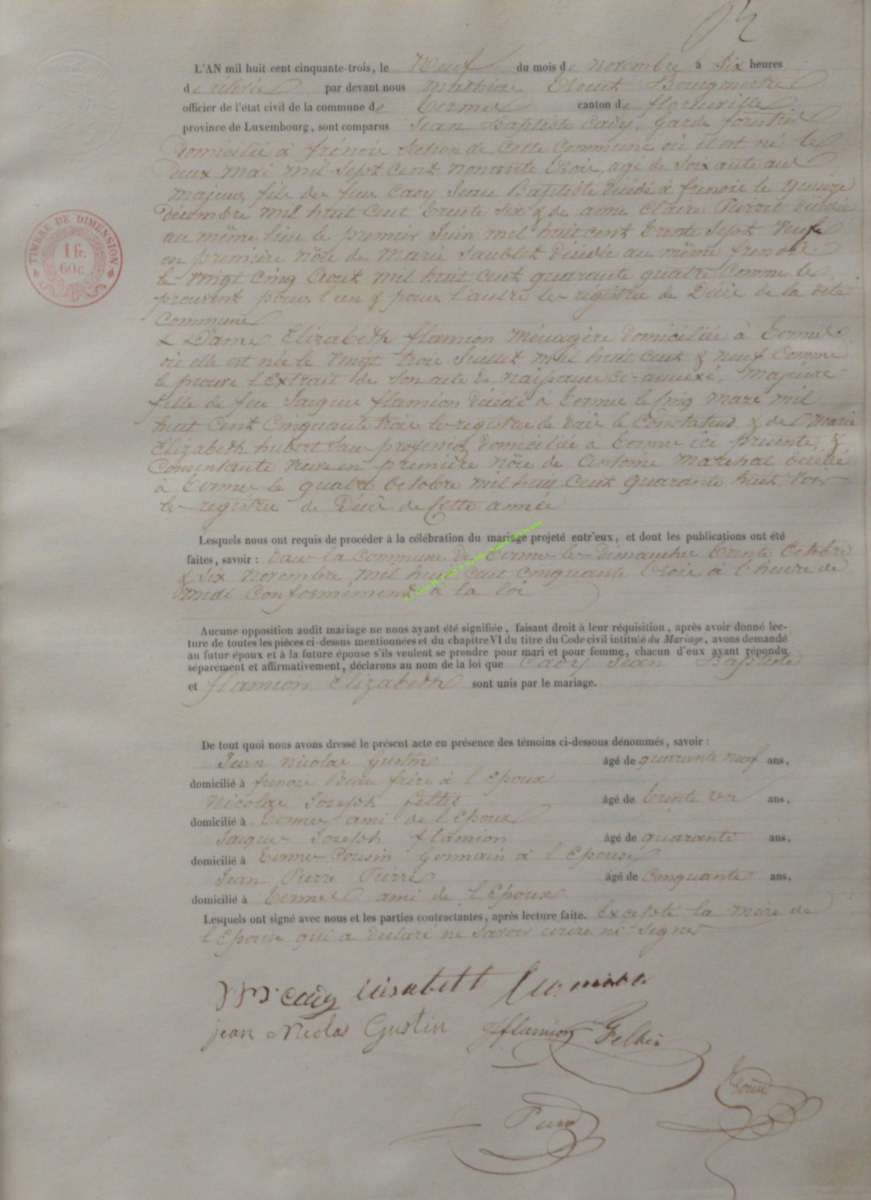 L'AN mil huit cent cinquante-trois, le Neuf du mois de novembre à Six heures
de par devant nous Bourgmestre
officier de l'état civil de la commune de termes canton de florenville
province de Luxembourg, sont comparus Jean Baptiste Cady, Garde forestier
Domicilié à frénois Section de Cette Commune où il est né le
deux mai mil Sept Cent nonante trois, agé de Soixante ans
majeur fils de feu Cady Jean Baptiste décédé à frenois le
décembre mil huit Cent trente Six & de anne Claire Pierret décédée
au même lieu le premier Juin mil huit Cent trente Sept Veuf
en première nôce de Marie décédée au même frenois
le Vingt Cinq Aout mil huit Cent quarante quatre Comme le
prouvent pour l'un & pour l'autre les régistres de Décès de la dite
Commune
& Dame Elizabeth flamion Ménagère domiciliée à termes
où elle est née le Vingt trois Juillet mil huit Cent & neuf Comme
le prouve l'Extrait de Son acte de Naissance Ci-annexé, Majeure
fille de feu Jacques flamion décédé à termes le Cinq mars mil
huit Cent Cinquante trois le registre le Constateur & de Marie
Elizabeth hubert Sans profession domiciliée à termes ici présente &
Consentante Veuve en première nôce de Antoine Marechal décédé
à termes le quatre octobre mil huit Cent quarante huit
le registre de Décès de Cette année
Lesquels nous ont requis de procéder à la célébration du mariage projeté entr'eux, et dont les publications ont été
faites, savoir : dans la Commune de termes les Dimanches trente Octobre
& Six novembre mil huit Cent Cinquante trois à l'heure de
midi Conformément à la loi
Aucune opposition audit mariage ne nous ayant été signifiée, faisant droit à leur réquisition, après avoir donné lec-
ture de toutes les pièces ci-dessus mentionnées et du chapitre VI du titre du Code civil intitulé du Mariage, avons demandé
au futur époux et à la future épouse s'ils veulent se prendre pour mari et pour femme, chacun d'eux ayant répondu
séparement et affirmativement, déclarons au nom de la loi que Cady Jean Baptiste
et flamion Elizabeth sont unis par le mariage.
De tout quoi nous avons dressé le présent acte en présence des témoins ci-dessous dénommés, savoir :
Jean Nicolas Gustin âgé de quarante neuf ans,
domicilié à frenois Beau frère à l'époux
Nicolas Joseph âgé de trente ans,
domicilié à termes ami de l'Epoux
Jacques Joseph flamion âgé de quarante ans,
domicilié à termes Cousin Germain à l'Epouse
Jean Pierre Pierre âgé de Cinquante ans,
domicilié à termes ami de l'Epoux
Lesquels ont signé avec nous et les parties contractantes, après lecture faite. Excepté la mère de
l'Epouse qui a déclaré ne Savoir écrire ni Signer
Cady Elisabett
jean Nicolas Gustin flamion
TIMBRE DE DIMENSION
1 fr.
60 c.